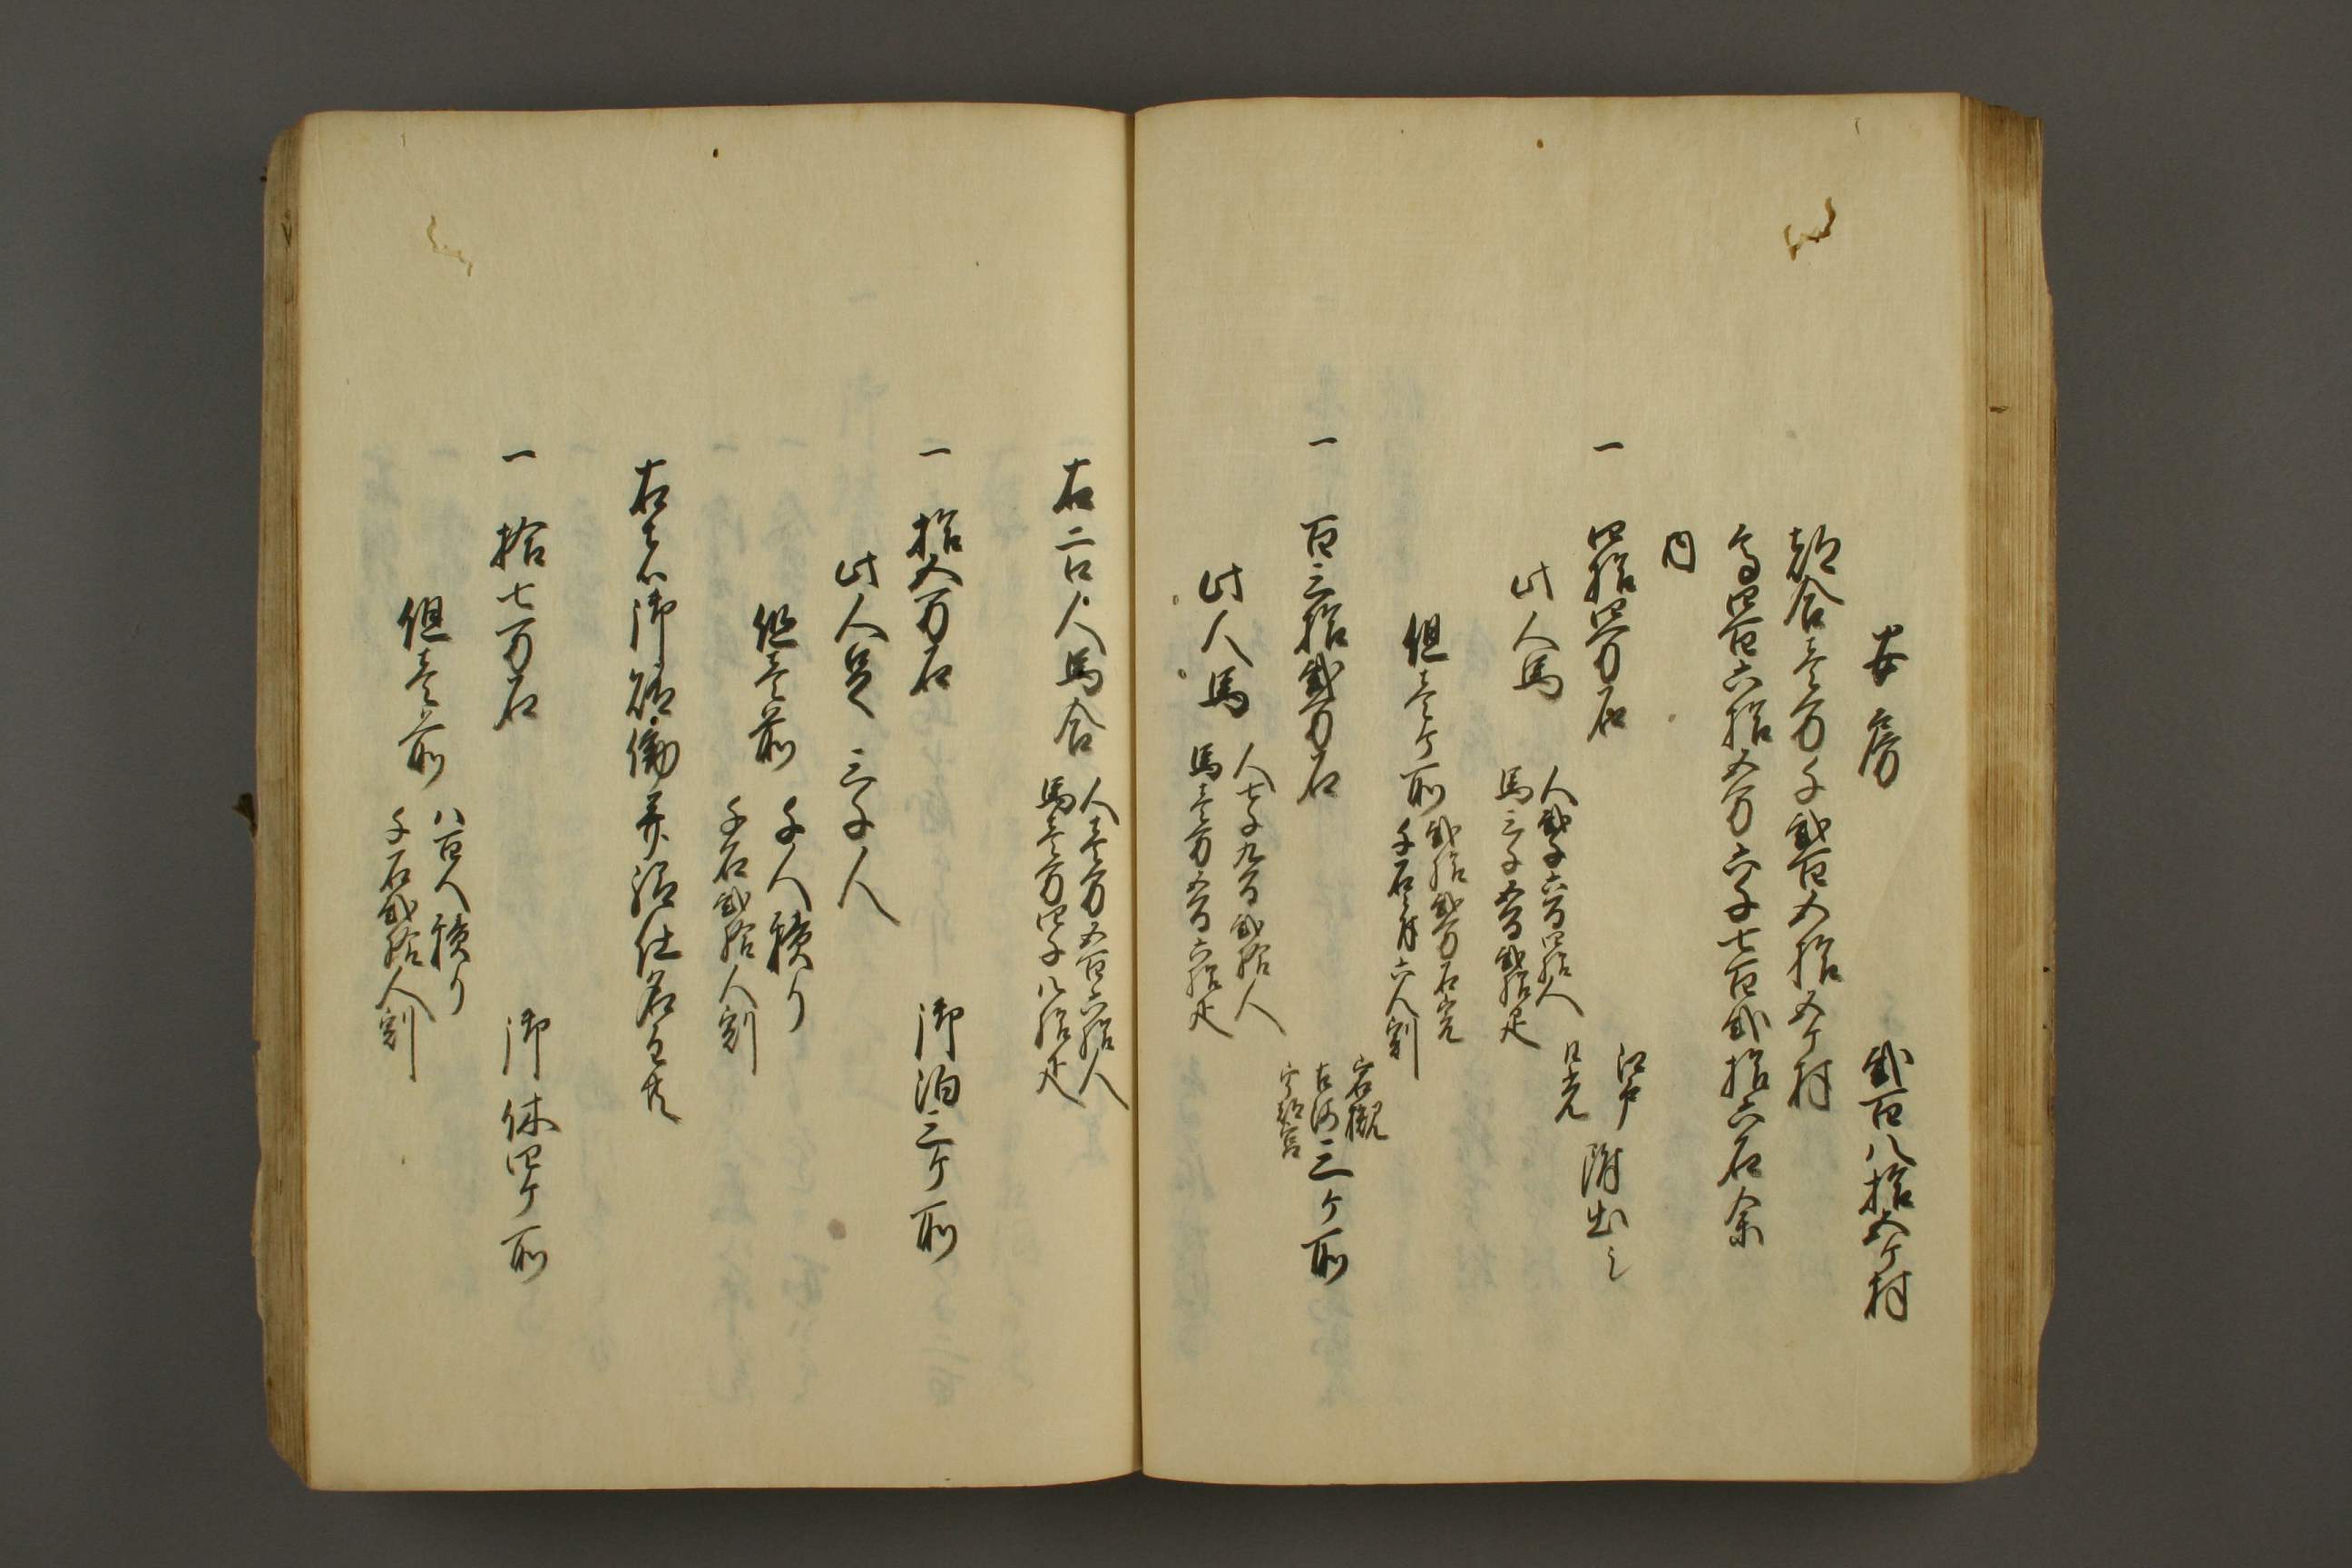 安房　弐百八拾五ケ村
都合壱万千弐百五拾五ケ村
高四百六拾五万六千七百弐拾六石余
内
一　四拾四万石　江戸
日光　附出し
此人馬　人弐千六百四拾人
馬三千五百弐拾疋
但壱ケ所　弐拾弐万石宛
千石ニ付六人割
一　百三拾弐万石　岩槻
古河
宇都宮　三ケ所
此人馬　人七千九百弐拾人
馬壱万五百六拾疋
右二口人馬合　人壱万五百六拾人
馬壱万四千八拾疋
一　拾五万石　御泊三ケ所
此人足　三千人
但壱ケ所　千人積り
千石弐拾人割
右者御 働并 仕
一　拾七万石　御休四ケ所
但壱ケ所　八百人積り
千石弐拾人割